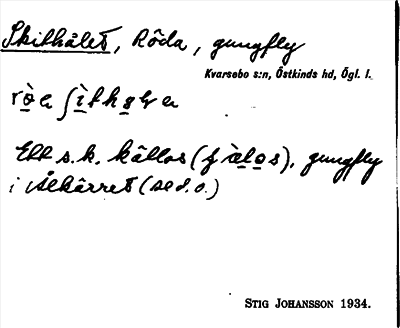 Skithålet, Röda, gungfly
Kvarsebo s:n, Östkinds hd, Ögl. l.
Ett s.k. källos (), gungfly
i Ålkärret (se d.o.)
Stig Johansson 1934.